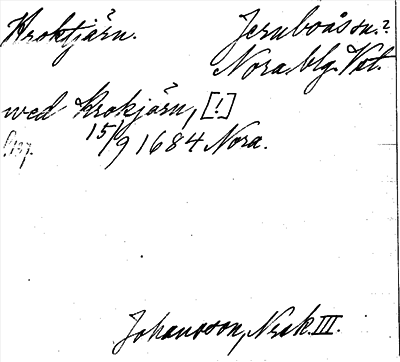 Kroktjärn. Jernboås sn.?
Nora blg. Vstl.
wed Krokjärn, [!]
15/9 1684 Nora.
Johansson, Norak. III.